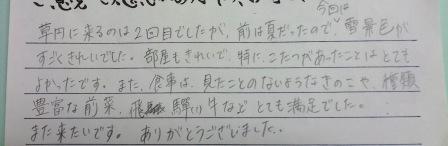 今回は
草円に来るのは2回目でしたが、前は夏だったので、雪景色が
すごくきれいでした。部屋もきれいで、特に、こたつがあったことはとても
よかったです。また、食事は、見たことのないようなきのこや、種類
豊富な前菜、飛騨牛など とても満足でした。
また来たいです。 ありがとうございました。